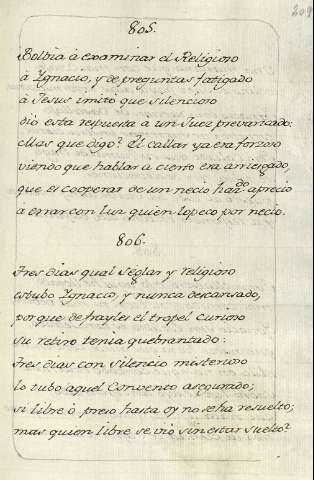 209
805.
Bolbia à examinar el Religioso
à Ygnacio, y de preguntas fatigado
à Jesus imitò que silencioso
diò esta respuesta à un Juez prevaricado:
Mas que digo? El callar ya era forzoso
viendo que hablar à cierto era arriesgado,
que es cooperar de un necio haz.do aprecio
à errar con luz quien lo peco por necio.
806.
Tres dias qual Seglar y religioso
estubo Ygnacio, y nunca descansado,
porque de frayles el tropel curioso
su retiro tenia quebrantado:
Tres dias con silencio misterioso
lo tubo aquel Convento asegurado;
si libre ò preso hasta oy no se ha resuelto;
mas quien libre se viò sin estar suelto?